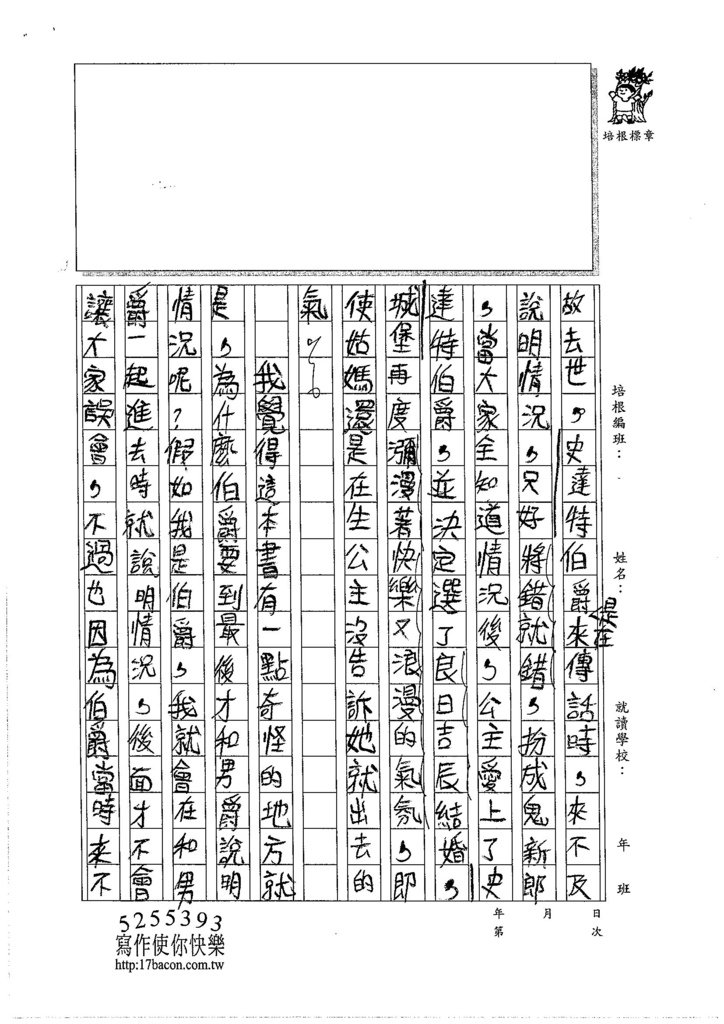 培根標章
培根編班：
姓名：
就讀學校：
年 班
年 月 日
第 次
故去世，史達特伯爵來傳話時，來不及
是在
說明情況，只好將錯就錯，扮成鬼新郎
，當大家全知道情況後，公主愛上了史
達特伯爵，並決定選了良日吉辰結婚，
城堡再度瀰漫著快樂又浪漫的氣氛，即
使姑媽還是在生公主沒告訴她就出去的
氣。
我覺得這本書有一點奇怪的地方就
是，為什麼伯爵要到最後才和男爵說明
情況呢？假如我是伯爵，我就會在和男
爵一起進去時就說明情況，後面才不會
讓大家誤會，不過也因為伯爵當時來不
5255393
寫作使你快樂
http:17bacon.com.tw